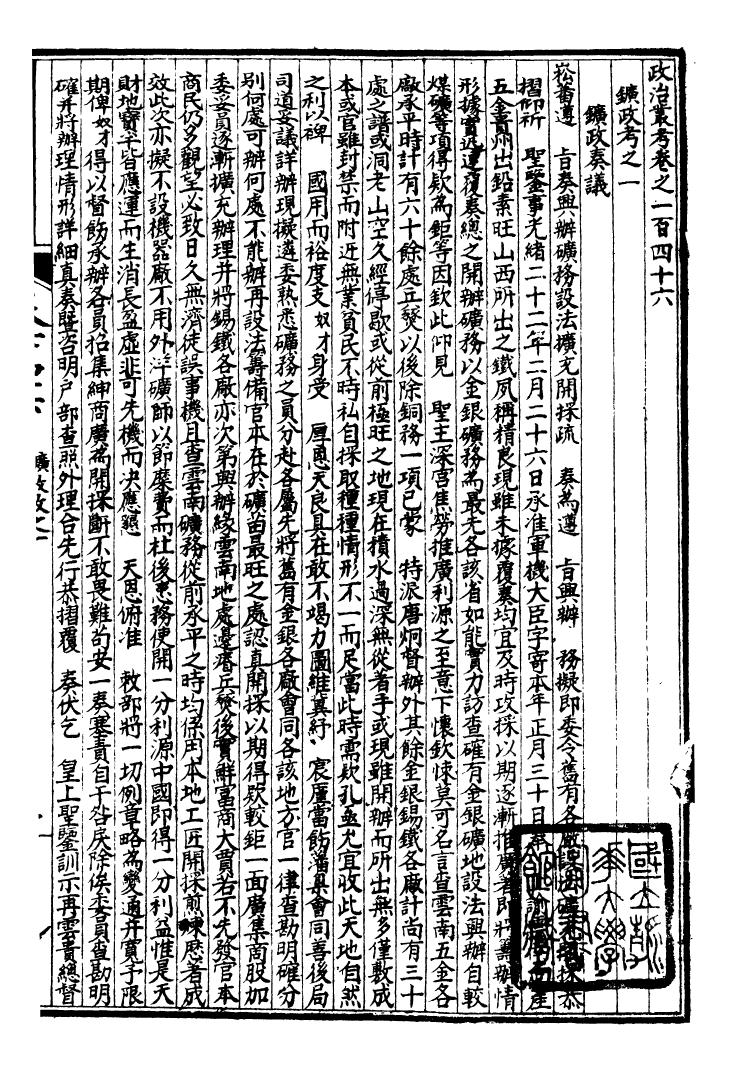 政治叢考卷之一百四十六
鑛政考之一
鑛政奏議
崧蕃遵 旨奏興辦礦務設法擴充開採疏 奏為遵 旨興辦 務擬即委令舊有各廠
摺仰祈 聖鑒事光緒二十二年二月二十六日承准軍機大臣字寄本年正月三十日奉
五金貴州出鉛素旺山西所出之鐵夙稱精良現雖未據覆奏均宜及時攻採以期逐漸推廣著即將籌辦情
形據實迅速覆奏總之開辦礦務以金銀礦務為最先各該省如能實力訪查確有金銀礦地設法興辦自較
煤礦等項得款為鉅等因欽此仰見 聖主深宮焦勞推廣利源之至意下懷欽悚莫可名言查雲南五金各
廠承平時計有六十餘處兵燹以後除銅務一項已蒙 特派唐炯督辦外其餘金銀錫鐵各廠計尚有三十
處之譜或洞老山空久經停歇或從前極旺之地現在積水過深無從著手或現雖開辦而所出無多僅敷成
本或官雖封禁而附近無業貧民不時私自採取種種情形不一而足當此時需款孔亟尤宜收此天地自然
之利以裨 國用而裕度支奴才身受 厚恩天良具在敢不竭力圖維冀紓 宸廑當飭藩臬會同善後局
司道妥議詳辦現擬遴委熟悉礦務之員分赴各屬先將舊有金銀各廠會同各該地方官一律查勘明確分
別何處可辦何處不能辦再設法籌備官本在於礦苗最旺之處認真開採以期得款較鉅一面廣集商股加
委妥員逐漸擴充辦理并將錫鐵各廠亦次第興辦緣雲南地處邊瘠兵燹後實鮮富商大賈若不先發官本
商民仍多觀望必致日久無濟徒誤事機且查雲南礦務從前承平之時均係用本地工匠開採煎煉歷著成
效此次亦擬不設機器廠不用外洋礦師以節糜費而杜後患務使開一分利源中國即得一分利益惟是天
財地寶平皆應運而生消長盈虛非可先機而決應懇 天恩俯准 敕部將一切例章略為變通并寬予限
期俾奴才得以督飭承辦各員招集紳商廣為開採斷不敢畏難苟安一奏塞責自干咎戾除俟委員查勘明
確并將辦理情形詳細真奏暨咨明戶部查照外理合先行恭摺覆 奏伏乞 皇上聖鑒訓示再雲貴總督
鑛政考之一